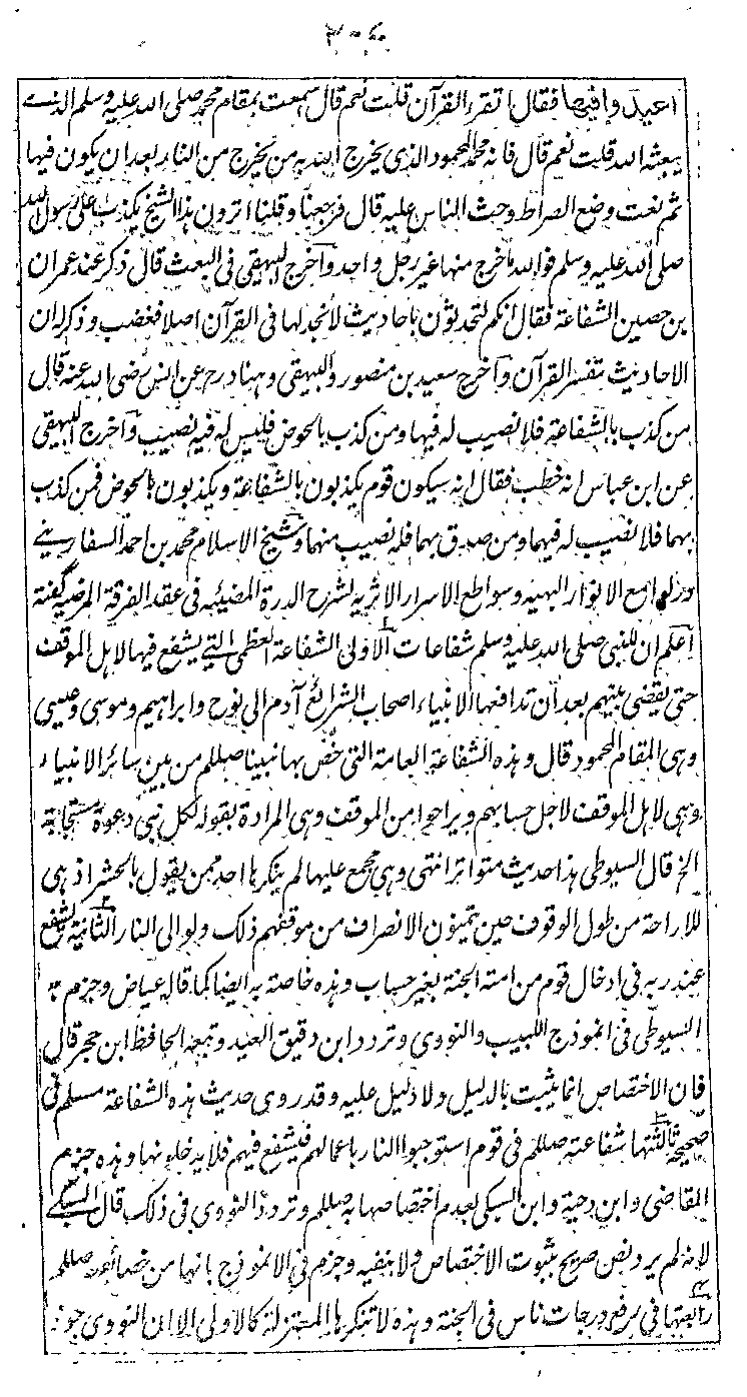 ٣٠٤
اعيدوا فيها فقال اتقرء القرآن قلت نعم قال اسمعت بمقام محمد صلى الله عليه وسلم الذى
يبعثه الله قلت نعم قال فانه محمد المحمود الذى يخرج الله به من يخرج من النار بعد ان يكون فيها
ثم نعت وضع الصراط وحث الناس عليه قال فرجعنا وقلنا اترون هذا الشيخ يكذب على رسول الله
صلى الله عليه وسلم فوالله ما خرج منها غير رجل واحد وآخرج البيهقى فى البعث قال ذكر عند عمران
بن حصين الشفاعة فقال انكم لتحدثون باحاديث لا نجد لها فى القرآن اصلا فغضب وذكر ان
الاحاديث تفسر القرآن وآخرج سعيد بن منصور والبيهقى وهناد رح عن انس رضى الله عنه قال
من كذب بالشفاعة فلا نصيب له فيها ومن كذب بالحوض فليس له فيه نصيب وآخرج البيهقى
عن ابن عباس انه خطب فقال انه سيكون قوم يكذبون بالشفاعة ويكذبون بالحوض فمن كذب
بهما فلا نصيب له فيهما ومن صدق بهما فله نصيب منهما وشيخ الاسلام محمد بن احمد السفارينے
در لوامع الانوار البهيه وسواطع الاسرار الاثريه لشرح الدرة المضيئه فى عقد الفرقة المرضيه گفته
آعلم ان للنبى صلى الله عليه وسلم شفاعات الاولى الشفاعة العظمى التے يشفع فيها لاهل الموقف
حتى يقضى بينهم بعد ان تدافعها الانبياء اصحاب الشرائع آدم الى نوح وابراهيم وموسى وعيسى
وهى المقام المحمود قال وهذه الشفاعة العامة التى خص بها نبينا صللم من بين سائر الانبياء
وهى لاهل الموقف لاجل حسابهم ويراحوا من الموقف وهى المرادة بقوله لكل نبى دعوة مستجابة
الخ قال السيوطى هذا حديث متواتر انتهى وهى مجمع عليها لم ينكرها احد ممن يقول بالحشر اذ هى
للاراحة من طول الوقوف حين يتمنون الانصراف من موقفهم ذلك ولو الى النار الثانية يشفع
عند ربه فى ادخال قوم من امته الجنة بغير حساب وهذه خاصة به ايضا كما قاله عياض وجزم به
السيوطى فى انموذج اللبيب والنووى وتردد ابن دقيق العيد وتبعه الحافظ ابن حجر قال
فان الاختصاص انما يثبت بالدليل ولا دليل عليه وقد روى حديث هذه الشفاعة مسلم فى
صحيحه ثالثتها شفاعته صللم فى قوم استوجبوا النار باعمالهم فيشفع فيهم فلا يدخلونها وهذه جزم
القاضى وابن دحية وابن السبكى بعدم اختصاصها به صللم وتردد النووى فى ذلك قال السبكے
لانه لم يرد نص صريح بثبوت الاختصاص ولا بنفيه وجزم فى الانموذج بانها من خصائصه صللم
رابعتها فى رفع درجات ناس فى الجنة وهذه لا تنكرها المعتزلة كالاولى الا ان النووى جوز